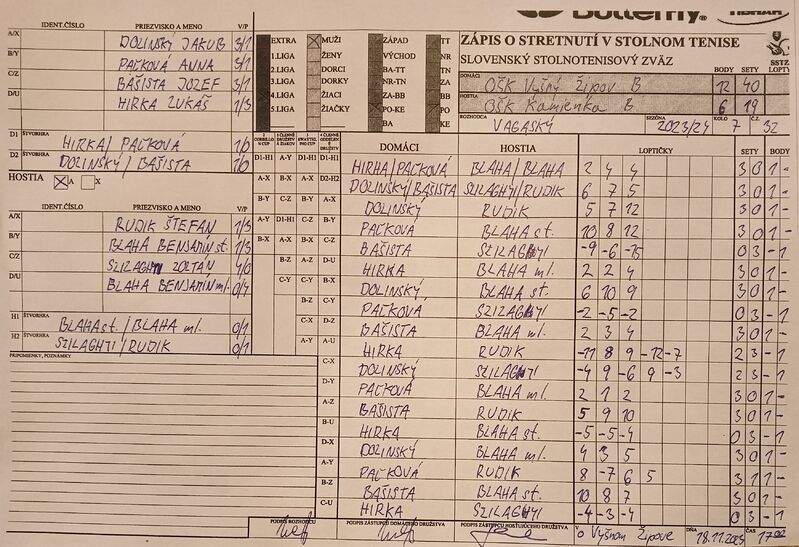 Butterfly
ZÁPIS O STRETNUTÍ V STOLNOM TENISE
SLOVENSKÝ STOLNOTENISOVÝ ZVÄZ
SSTZ
DOMÁCI BODY SETY LOPTY
OŠK Vyšný Žipov B 12 40
HOSTIA
OŠK Kamienka B 6 19
ROZHODCA SEZÓNA KOLO Č.Z.
VAGASKÝ 2023/24 7 32
EXTRA MUŽI ZÁPAD TT
1.LIGA ŽENY VÝCHOD NR
2.LIGA DORCI BA-TT TN
3.LIGA DORKY NR-TN ZA
4.LIGA ŽIACI ZA-BB BB
5.LIGA ŽIAČKY PO-KE PO
BA KE
IDENT.ČÍSLO PRIEZVISKO A MENO V/P
A/X DOLINSKÝ JAKUB 3/1
B/Y PAČKOVÁ ANNA 3/1
C/Z BAŠISTA JOZEF 3/1
D/U HIRKA LUKÁŠ 1/3
D1 ŠTVORHRA HIRKA/PAČKOVÁ 1/0
D2 ŠTVORHRA DOLINSKÝ/BAŠISTA 1/0
HOSTIA A X
IDENT.ČÍSLO PRIEZVISKO A MENO V/P
A/X RUDIK ŠTEFAN 1/3
B/Y BLAHA BENJAMÍN st. 1/3
C/Z SZILAGHYI ZOLTÁN 4/0
D/U BLAHA BENJAMÍN ml. 0/4
H1 ŠTVORHRA BLAHA st./BLAHA ml. 0/1
H2 ŠTVORHRA SZILAGHYI/RUDIK 0/1
PRIPOMIENKY, POZNÁMKY
DOMÁCI HOSTIA LOPTIČKY SETY BODY
D1-H1 HIRKA/PAČKOVÁ BLAHA/BLAHA 2 4 4 3 0 1 -
D2-H2 DOLINSKÝ/BAŠISTA SZILAGHYI/RUDIK 6 7 5 3 0 1 -
A-X DOLINSKÝ RUDIK 5 7 12 3 0 1 -
B-Y PAČKOVÁ BLAHA st. 10 8 12 3 0 1 -
C-Z BAŠISTA SZILAGHYI -9 -6 -15 0 3 - 1
D-U HIRKA BLAHA ml. 2 2 4 3 0 1 -
DOLINSKÝ BLAHA st. 6 10 9 3 0 1 -
PAČKOVÁ SZILAGHYI -2 -5 -2 0 3 - 1
BAŠISTA BLAHA ml. 2 3 4 3 0 1 -
HIRKA RUDIK -11 8 9 -12 -7 2 3 - 1
C-X DOLINSKÝ SZILAGHYI -4 9 -6 9 -3 2 3 - 1
D-Y PAČKOVÁ BLAHA ml. 2 1 2 3 0 1 -
A-Z BAŠISTA RUDIK 5 9 10 3 0 1 -
B-U HIRKA BLAHA st. -5 -5 -4 0 3 - 1
D-X DOLINSKÝ BLAHA ml. 4 3 5 3 0 1 -
A-Y PAČKOVÁ RUDIK 8 -7 6 5 3 1 1 -
B-Z BAŠISTA BLAHA st. 10 8 7 3 0 1 -
C-U HIRKA SZILAGHYI -4 -3 -4 0 3 - 1
PODPIS ROZHODCU PODPIS ZÁSTUPCU DOMÁCEHO DRUŽSTVA PODPIS ZÁSTUPCU HOSŤUJÚCEHO DRUŽSTVA V o Vyšnom Žipove DŇA 18.11.2023 ČAS 17:00